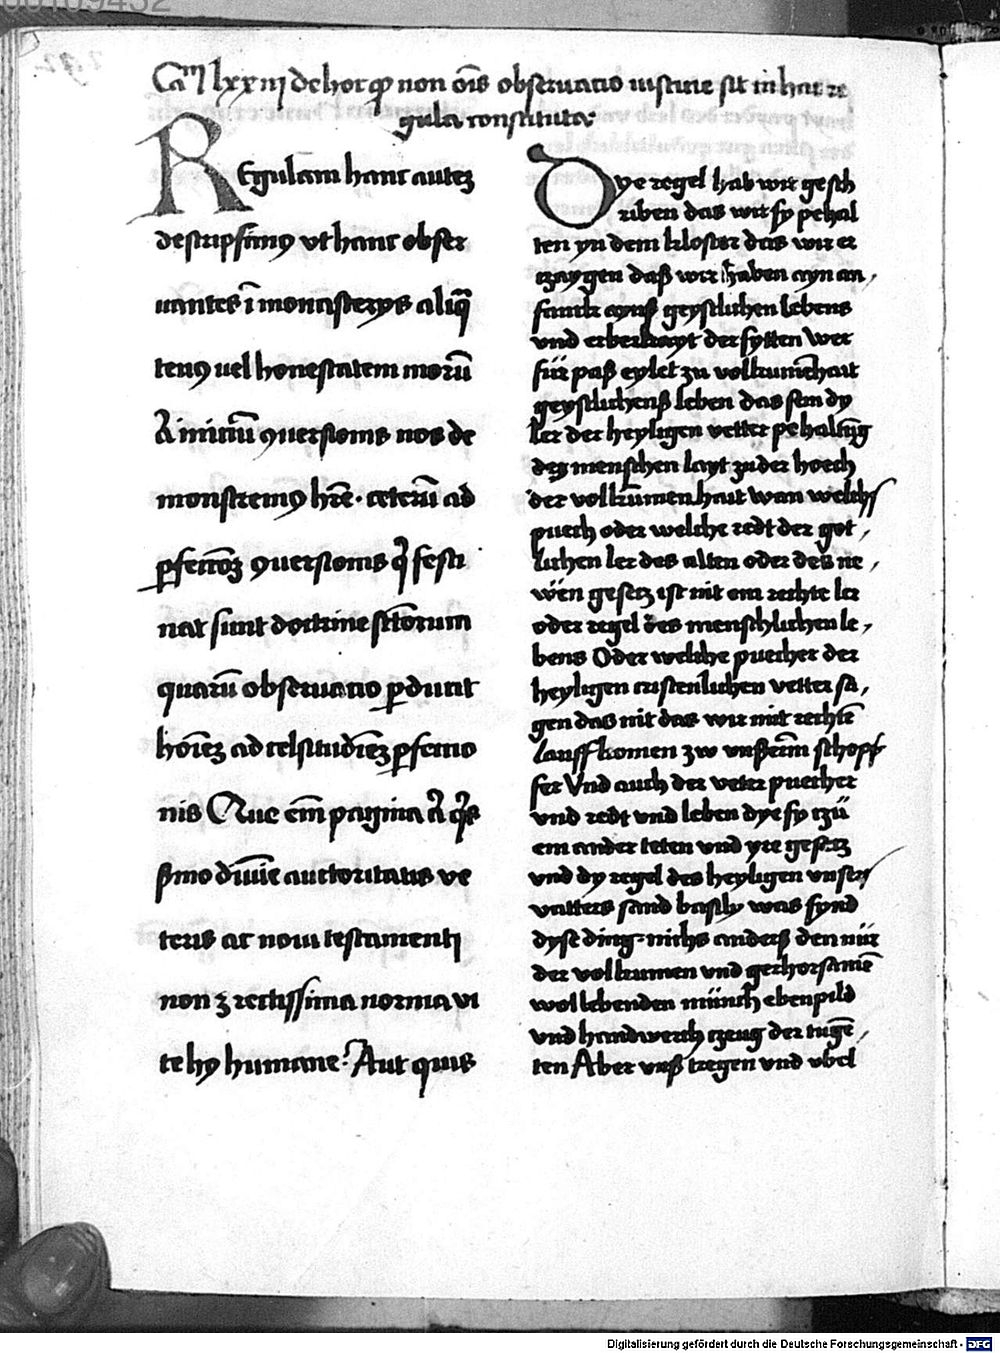 Cam lxxiij de hoc qd non ois obseruacio iusticie sit in hac re
gula constituta
REgulam hanc autez
descripsimꝯ vt hanc obser
uantes ī monasterys aliqͣ
tenꝯ uel honestatem morū
Aͭ initiū ꝯuersionis nos de
monstremꝯ hr̄e · ceterū ad
ꝑfectōeʒ ꝯuersionis qͥ festi
nat sunt doctrine sctorum
quarū obseruatio ꝑducit
hoīeʒ ad celsitudīeʒ ꝑfectio
nis Que em̄ pagina Aͭ qͥs
ẜmo diuīe auctoritatis ve
teris ac noui testamenti
non ʒ rectissima norma vi
te hy humane? Aut quis
Dye regel hab wir gesch
riben das wir sy pehal
ten yn dem kloster das wir er
tzaygen daß wir haben ayn an,
fanck ayns geystlichen lebens
vnd erberkayt der sytten Wer
für paß eylet zu volkumēhait
geystlichenß leben das sein dy
ler der heyligen vetter pehaltūg
dez menschen layt zu der hoech
der volkūmenhait wan welchs
puech oder welche redt der got,
lichen ler des alten oder des ne,
wen gesetz ist nit ein rechte ler
oder regel des menschlichen le,
bens Oder welche puecher der
heyligen cristenlichen vetter sa,
gen das nit das wir mit rechtē
lauff komen zw vnßerm schopf
fer Vnd auch der veter puecher
vnd redt vnd leben dye sy tzü
em ander teten vnd yre gesetz
vnd dy regel des heyligen vnsers
vatters sand basily was synd
dyse ding nichs anderß den nür
der volkumen vnd gerhorsamē
wol lebenden münch ebenpild
vnd handwerch tzeug der tugē,
ten Aber vnß tregen vnd vbel
Digitalisierung gefördert durch die Deutsche Forschungsgemeinschaft - DFG